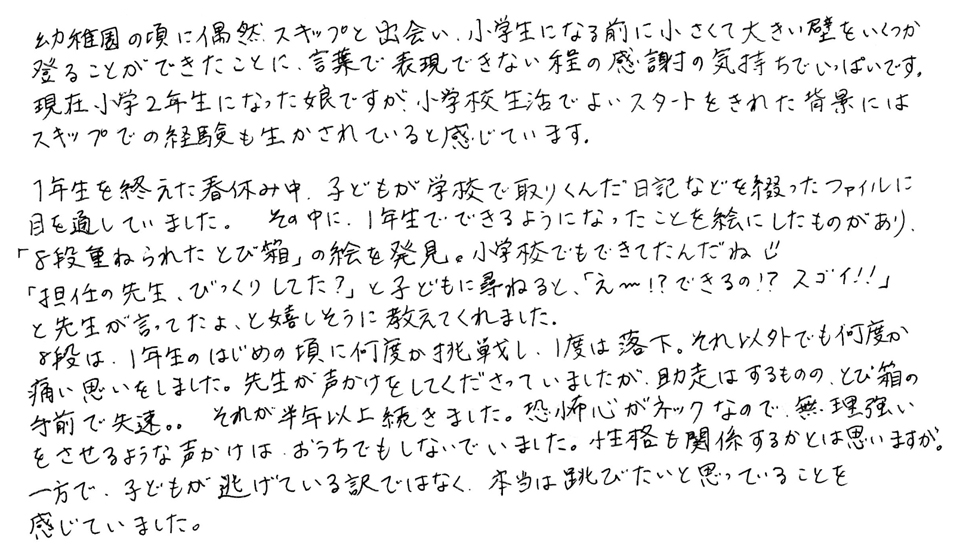 幼稚園の頃に偶然スキップと出会い、小学生になる前に小さくて大きい壁をいくつか
登ることができたことに、言葉で表現できない程の感謝の気持ちでいっぱいです。
現在小学2年生になった娘ですが、小学校生活でよいスタートをきれた背景には
スキップでの経験も生かされていると感じています。
1年生を終えた春休み中、子どもが学校で取りくんだ日記などを綴ったファイルに
目を通していました。 その中に、1年生でできるようになったことを絵にしたものがあり、
「8段重ねられたとび箱」の絵を発見。小学校でもできてたんだね
「担任の先生、びっくりしてた?」と子どもに尋ねると、「え〜!?できるの!? スゴイ!!」
と先生が言ってたよ、と嬉しそうに教えてくれました。
8段は、1年生のはじめの頃に何度か挑戦し、1度は落下。それ以外でも何度か
痛い思いをしました。先生が声かけをしてくださっていましたが、助走はするものの、とび箱の
手前で失速。。 それが半年以上続きました。恐怖心がネックなので、無理強い
をさせるような声かけは、おうちでもしないでいました。性格も関係するかとは思いますが。
一方で、子どもが逃げている訳ではなく、本当は跳びたいと思っていることを
感じていました。